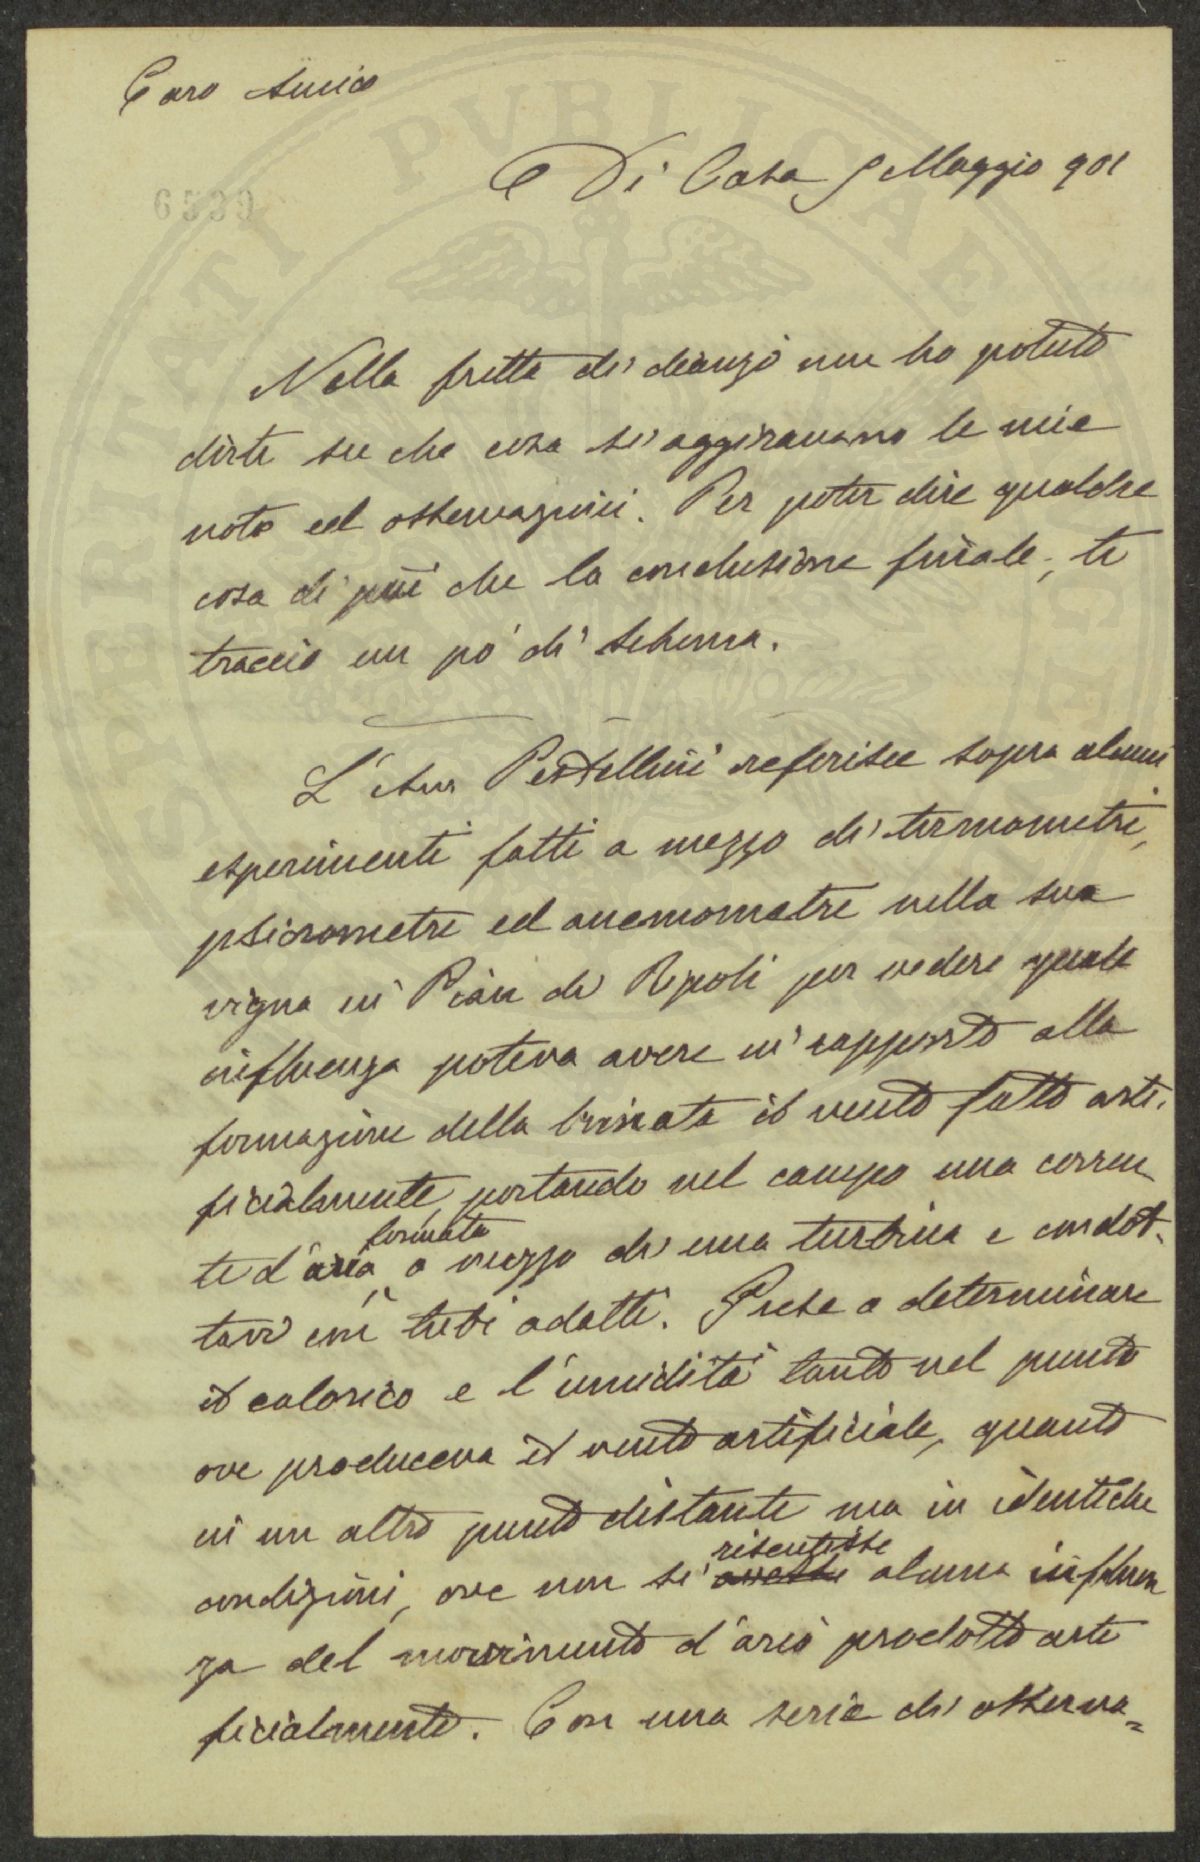 Caro Amico
Di Casa, 5 Maggio 901
6539
Nella fretta di dianzi non ho potuto
dirti su che cosa si aggiravano le mie
note ed osservazioni. Per poter dire qualche
cosa di più che la conclusione finale, ti
traccio un pò di schema.
L'Avv Pestellini referisce sopra alcuni
esperimenti fatti a mezzo di termometri,
psicrometri ed anemometri nella sua
vigna in Pian di Ripoli per vedere quale
influenza poteva avere in rapporto alla
formazione della brinata il vento fatto arti-
ficialmente, portando nel campo una corren
te d'aria formata a mezzo di una turbina e condot-
tavi con tubi adatti. Prese a determinare
il calorico e l'umidità tanto nel punto
ove produceva il vento artificiale, quanto
in un altro punto distante ma in identiche
condizioni, ove non si avesse risentisse alcuna influen
za del movimento d'aria prodotto arti
ficialmente. Con una serie di osserva=
PERITATI PVBLICAE